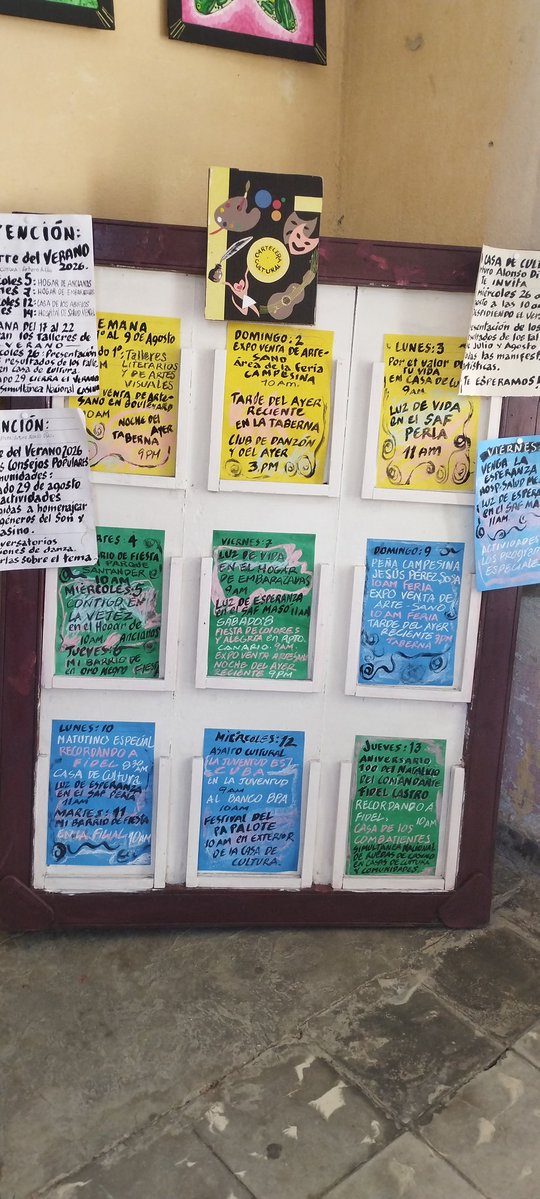 CARTELERA
CULTURAL
TENCIÓN:
rre del VERANO
2026.
coles 5: HOGAR DE ANCIANOS
nes 7: HOGAR DE EMBARAZADAS
coles 12: CASA DE LOS ABUELOS
14: HOSPITAL DE SALUD MENTAL
ANA DEL 17 al 22
an los Talleres de
VERANO
coles 26: Presentación
resultados de los Talle
en casa de cultura.
ado 29 CIERRA EL VERANO
Simultánea Nacional CASINO
NCIÓN:
e del Verano 2026
s Consejos Populares
munidades:
ado 29 de agosto
actividades
idas a homenajear
géneros del Son y
asino.
versatorios
iones de danza.
rlas sobre el tema.
EMANA
1º AL 9 de Agosto
ado 1º: Talleres
LITERARIOS
Y DE ARTES
VISUALES
VENTA DE ARTE-
SANO EN BOULEVARD
10 AM
NOCHE DEL
AYER
TABERNA
9 PM
DOMINGO: 2
EXPO VENTA DE ARTE-
SANO
Área de la feria
CAMPESINA
10 AM.
TARDE DEL AYER
RECIENTE
EN LA TABERNA
CLUB DE DANZÓN
Y DEL AYER
3 PM
LUNES: 3
Por el valor de
TU VIDA
EN CASA DE CU
9 AM
LUZ DE VIDA
EN EL SAF
PERLA
11 AM
CASA DE CUL
uro Alonso Dí
TE INVITA
miércoles 26 d
osto a las 10 a
ESPIDIENDO EL VER
resentación de los
ltados de los tal
de Julio y Agosto
das las manifest
ísticas.
TE ESPERAMOS
VIERNES
VENTA DE
ESPERANZA
HOSP. SALUD ME
LUZ DE ESPERANZ
EN EL SAF MAS
11 AM
ACTIVIDADES
ESPECIALE
ARTES 4
RIO DE FIESTA
PARQUE
SANTANDER
10 AM
MIÉRCOLES: 5
CONTIGO EN
LA VEJEZ
en el Hogar de
10 AM Ancianos
JUEVES: 6
MI BARRIO DE
EN OMO NEGRO FIESTA
VIERNES: 7
LUZ DE VIDA
EN EL HOGAR
DE EMBARAZADAS
9 AM
LUZ DE ESPERANZA
EN EL SAF MASO 11 AM
SÁBADO: 8
FIESTA DE COLORES
Y ALEGRÍA EN RPTO.
CANARIO 9 AM.
EXPO VENTA ARTESANO
NOCHE DEL AYER
RECIENTE 9 PM
DOMINGO 9
PEÑA CAMPESINA
JESÚS PÉREZ SOSA
10 AM FERIA
EXPO VENTA DE
ARTE-SANO
10 AM FERIA
TARDE DEL AYER
RECIENTE 3 PM
TABERNA
LUNES: 10
MATUTINO ESPECIAL
RECORDANDO A
FIDEL
CASA DE CULTURA
LUZ DE ESPERANZA
EN EL SAF PERLA
11 AM
MARTES: 11
MI BARRIO DE FIESTA
FILIAL 10 AM
MIÉRCOLES: 12
ASALTO CULTURAL
LA JUVENTUD
CUBA
EN LA JUVENTUD
9 AM
AL BANCO BPA
10 AM
FESTIVAL DEL
PAPALOTE
10 AM EN EXTERIOR
DE LA CASA DE
CULTURA.
JUEVES: 13
ANIVERSARIO
100 DEL NATALICIO
DEL COMANDANTE
FIDEL CASTRO
RECORDANDO A
FIDEL, 10 AM
CASA DE LOS
COMBATIENTES
SIMULTÁNEA NACIONAL
DE RUEDAS DE CASINO
EN CASAS DE CULTURA
Y COMUNIDADES.